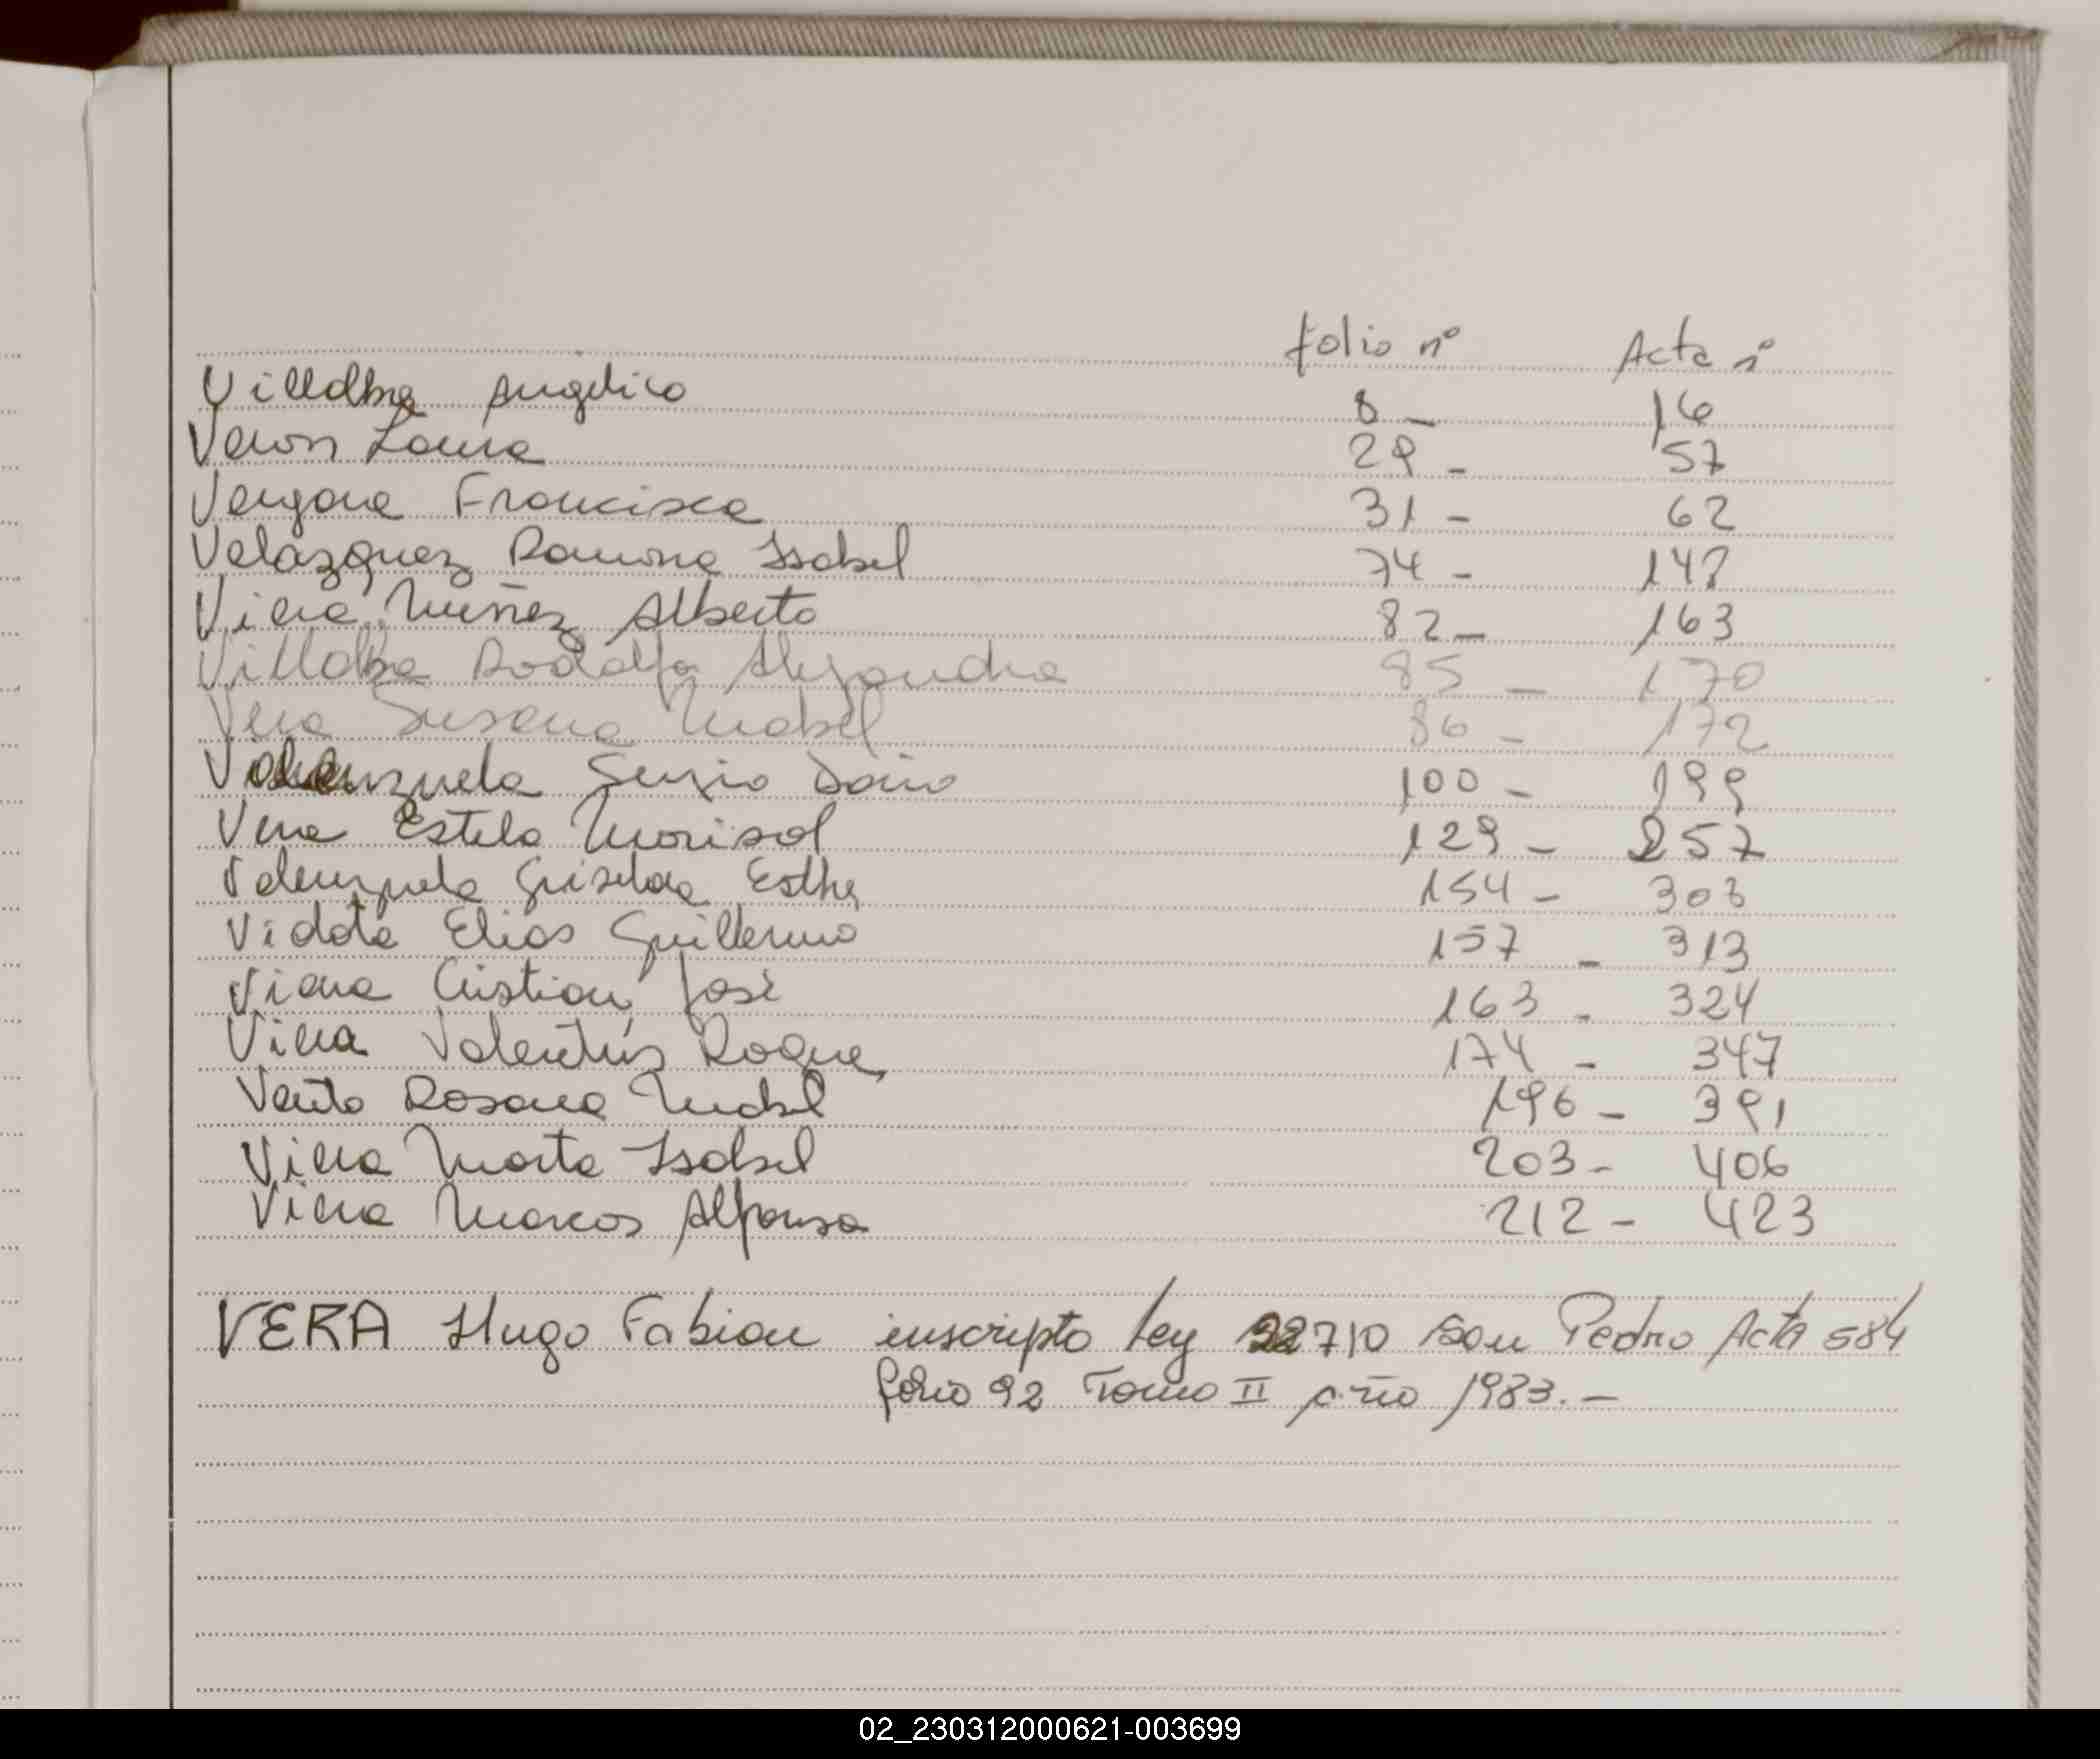 folio nº Acta nº
Villalba Angelica 8 - 16
Veron Laura 29 - 57
Vergara Francisca 31 - 62
Velazquez Ramona Isabel 74 - 147
Viera Nuñez Alberto 82 - 163
Villalba Rodolfo Alejandro 85 - 170
Vera Susana Mabel 86 - 172
Valenzuela Sergio Dario 100 - 199
Vera Estela Marisol 129 - 257
Valenzuela Griselda Esther 154 - 308
Vidota Elias Guillermo 157 - 313
Viana Cristian José 163 - 324
Viera Valentin Roque 174 - 347
Vento Rosana Mabel 196 - 391
Viera Marta Isabel 203 - 406
Viera Marcos Alfonso 212 - 423
VERA Hugo Fabian inscripto ley 22710 San Pedro Acta 584
folio 92 Tomo II año 1983.-
02_230312000621-003699